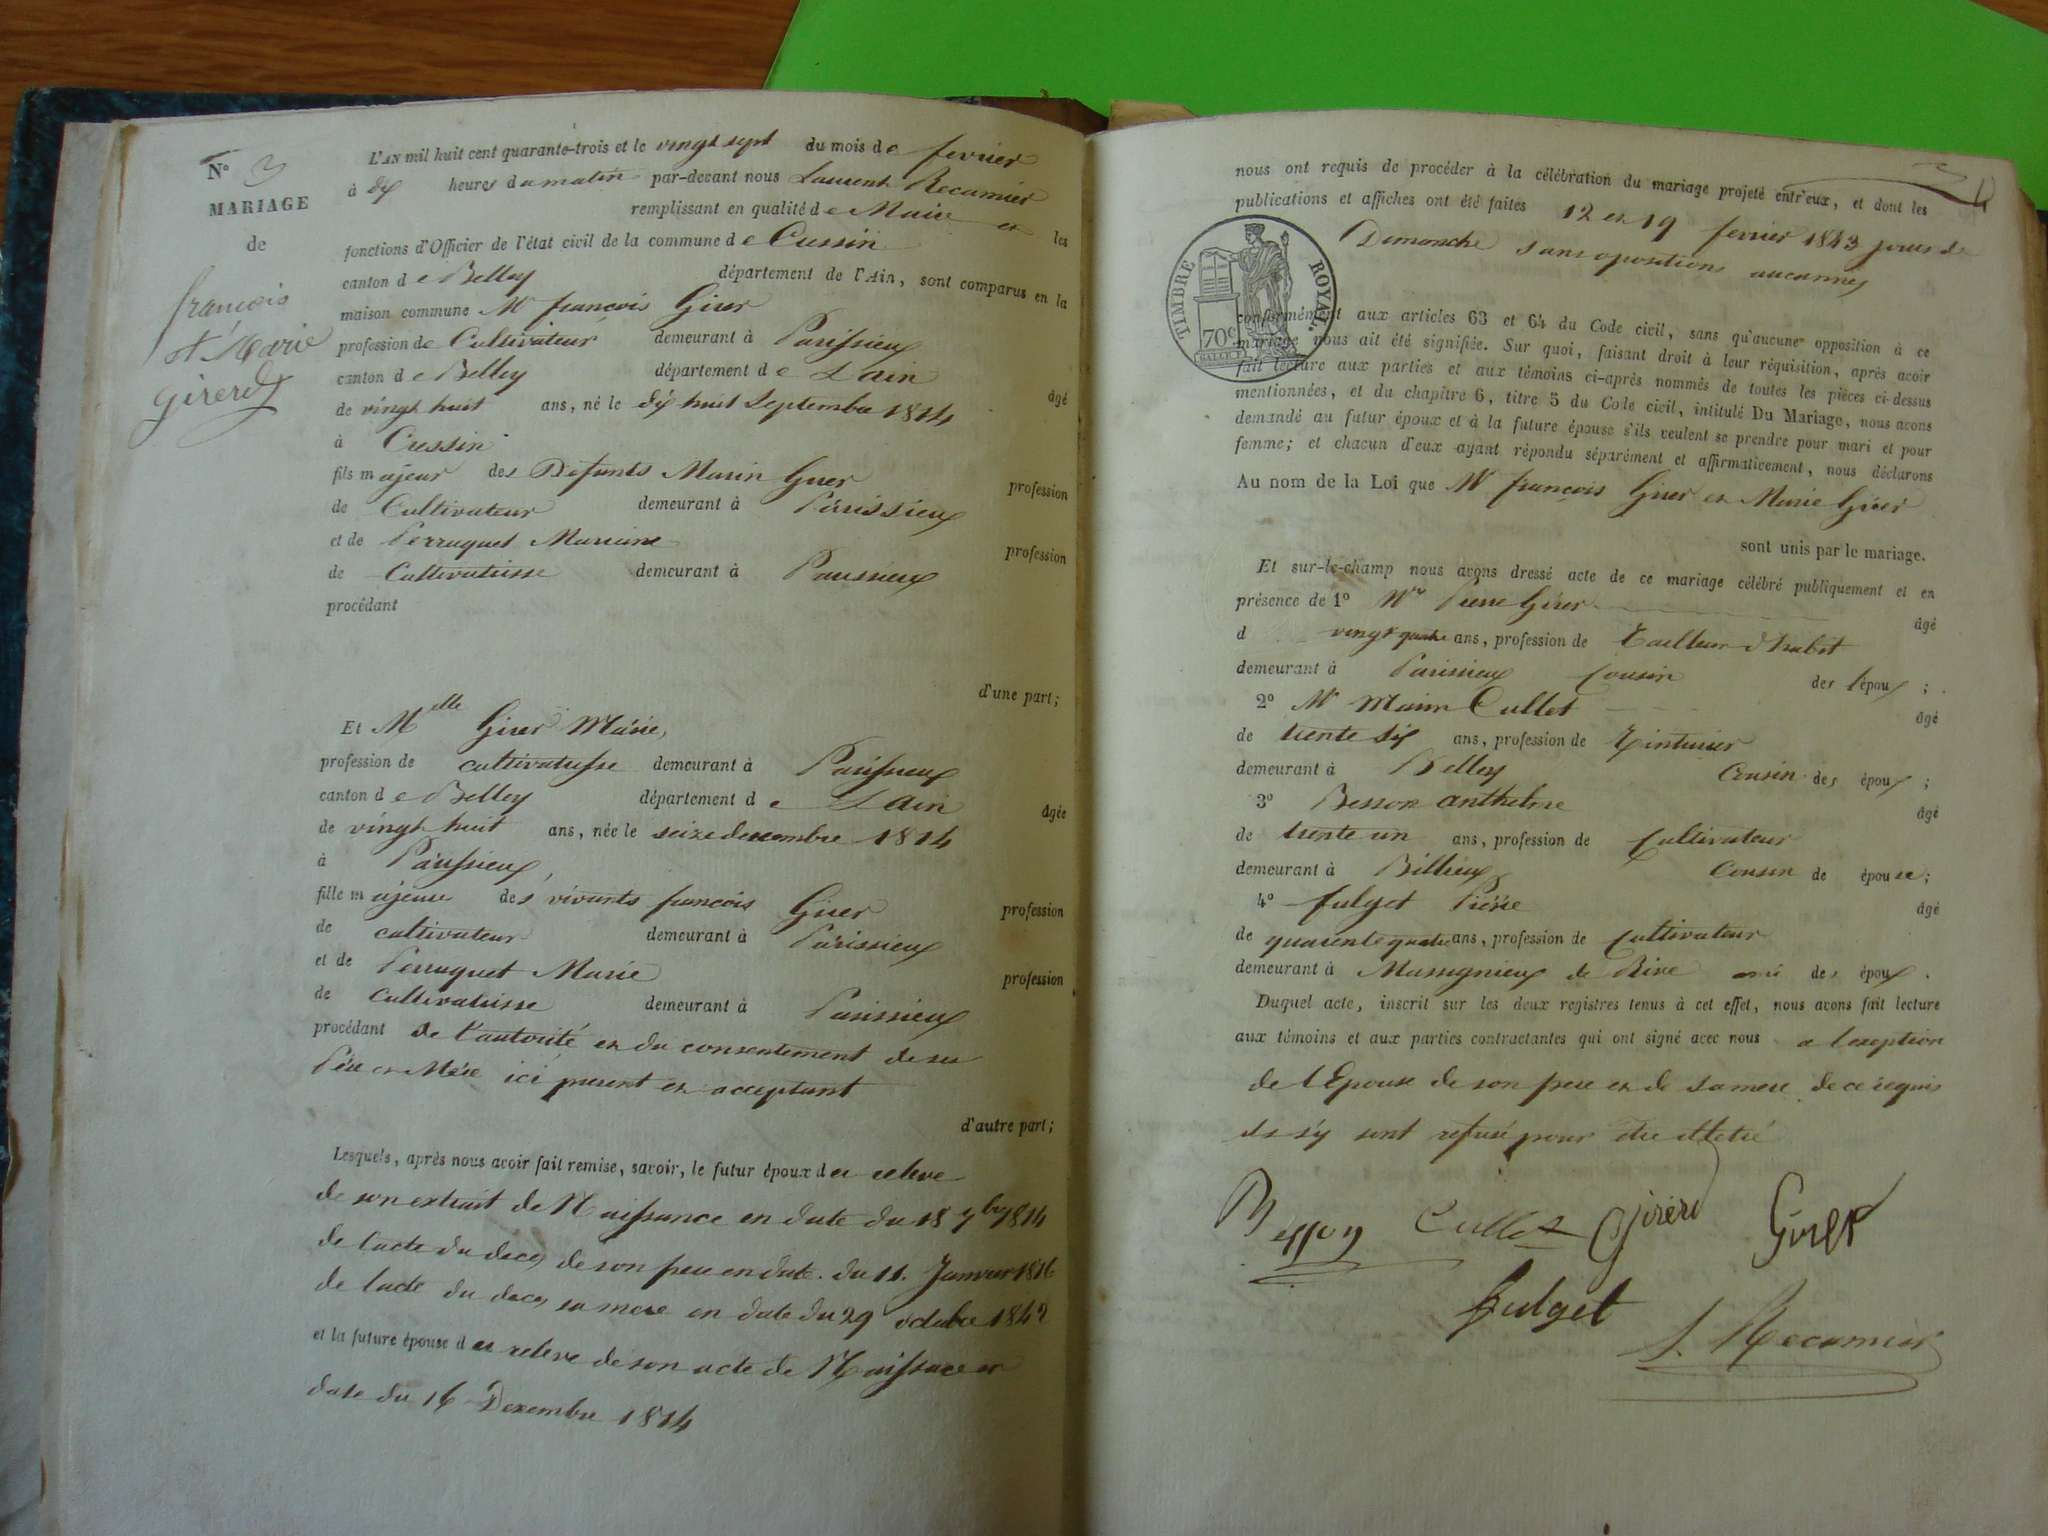 N° 3
MARIAGE
de
françois
et Marie
girerd
L'AN mil huit cent quarante-trois et le vingt sept du mois de fevrier
à dix heures du matin par-devant nous Laurent Recamier
remplissant en qualité de Maire les
fonctions d'Officier de l'état civil de la commune de Cressin
canton de Belley département de l'Ain, sont comparus en la
maison commune Mr françois Girer
profession de Cultivateur demeurant à Parissieux
canton de Belley département de L'ain âgé
de vingt huit ans, né le dix huit Septembre 1814
à Cressin
fils majeur des Défunts Marin Girer profession
de Cultivateur demeurant à Parissieux
et de Perruquet Mariane profession
de Cultivatrisse demeurant à Parissieux
procédant
d'une part;
Et Melle Girer Marie,
profession de cultivatrisse demeurant à Parissieux
canton de Belley département de L'Ain âgée
de vingt huit ans, née le seize decembre 1814
à Parissieux,
fille majeure des vivants françois Girer profession
de cultivateur demeurant à Parissieux
et de Perruquet Marie profession
de cultivatrisse demeurant à Parissieux
procédant de l'autorité et du consentement de ses
Père et Mère ici present et acceptant
d'autre part;
Lesquels, après nous avoir fait remise, savoir, le futur époux du releve
de son extrait de Naissance en date du 18 7bre 1814
de lacte du deces de son pere en date du 11 Janvier 1816
de lacte du deces sa mere en date du 29 octobre 1842
et la future épouse du releve de son acte de Naissace en
date du 16 Decembre 1814
nous ont requis de procéder à la célébration du mariage projeté entr'eux, et dont les
publications et affiches ont été faites 12 et 19 fevrier 1843 jours de
Dimanche sans opositions aucannes
TIMBRE ROYAL.
70c
conformément aux articles 63 et 64 du Code civil, sans qu'aucune opposition à ce
mariage nous ait été signifiée. Sur quoi, faisant droit à leur réquisition, après avoir
fait lecture aux parties et aux témoins ci-après nommés de toutes les pièces ci-dessus
mentionnées, et du chapitre 6, titre 5 du Code civil, intitulé Du Mariage, nous avons
demandé au futur époux et à la future épouse s'ils veulent se prendre pour mari et pour
femme; et chacun d'eux ayant répondu séparément et affirmativement, nous déclarons
Au nom de la Loi que Mr françois Girer et Marie Girer
sont unis par le mariage.
Et sur-le-champ nous avons dressé acte de ce mariage célébré publiquement et en
présence de 1° Mr Pierre Girer âgé
d vingt quatre ans, profession de Tailleur d'habit
demeurant à Parissieux Cousin des l'époux;
2° Mr Marin Cullet âgé
de trente six ans, profession de Tinturier
demeurant à Belley Cousin des époux;
3° Besson anthelme âgé
de trente un ans, profession de Cultivateur
demeurant à Billieux Cousin de épouse;
4° fulget Pierre âgé
de quarente quatre ans, profession de Cultivateur
demeurant à Massignieux de Rive ami des époux.
Duquel acte, inscrit sur les deux registres tenus à cet effet, nous avons fait lecture
aux témoins et aux parties contractantes qui ont signé avec nous a lexeption
de lEpouse de son pere et de sa mere de ce requis
ils s'y sont refusé pour etre illetré
Besson Cullet Girerd Girer
fulget L. Recamier